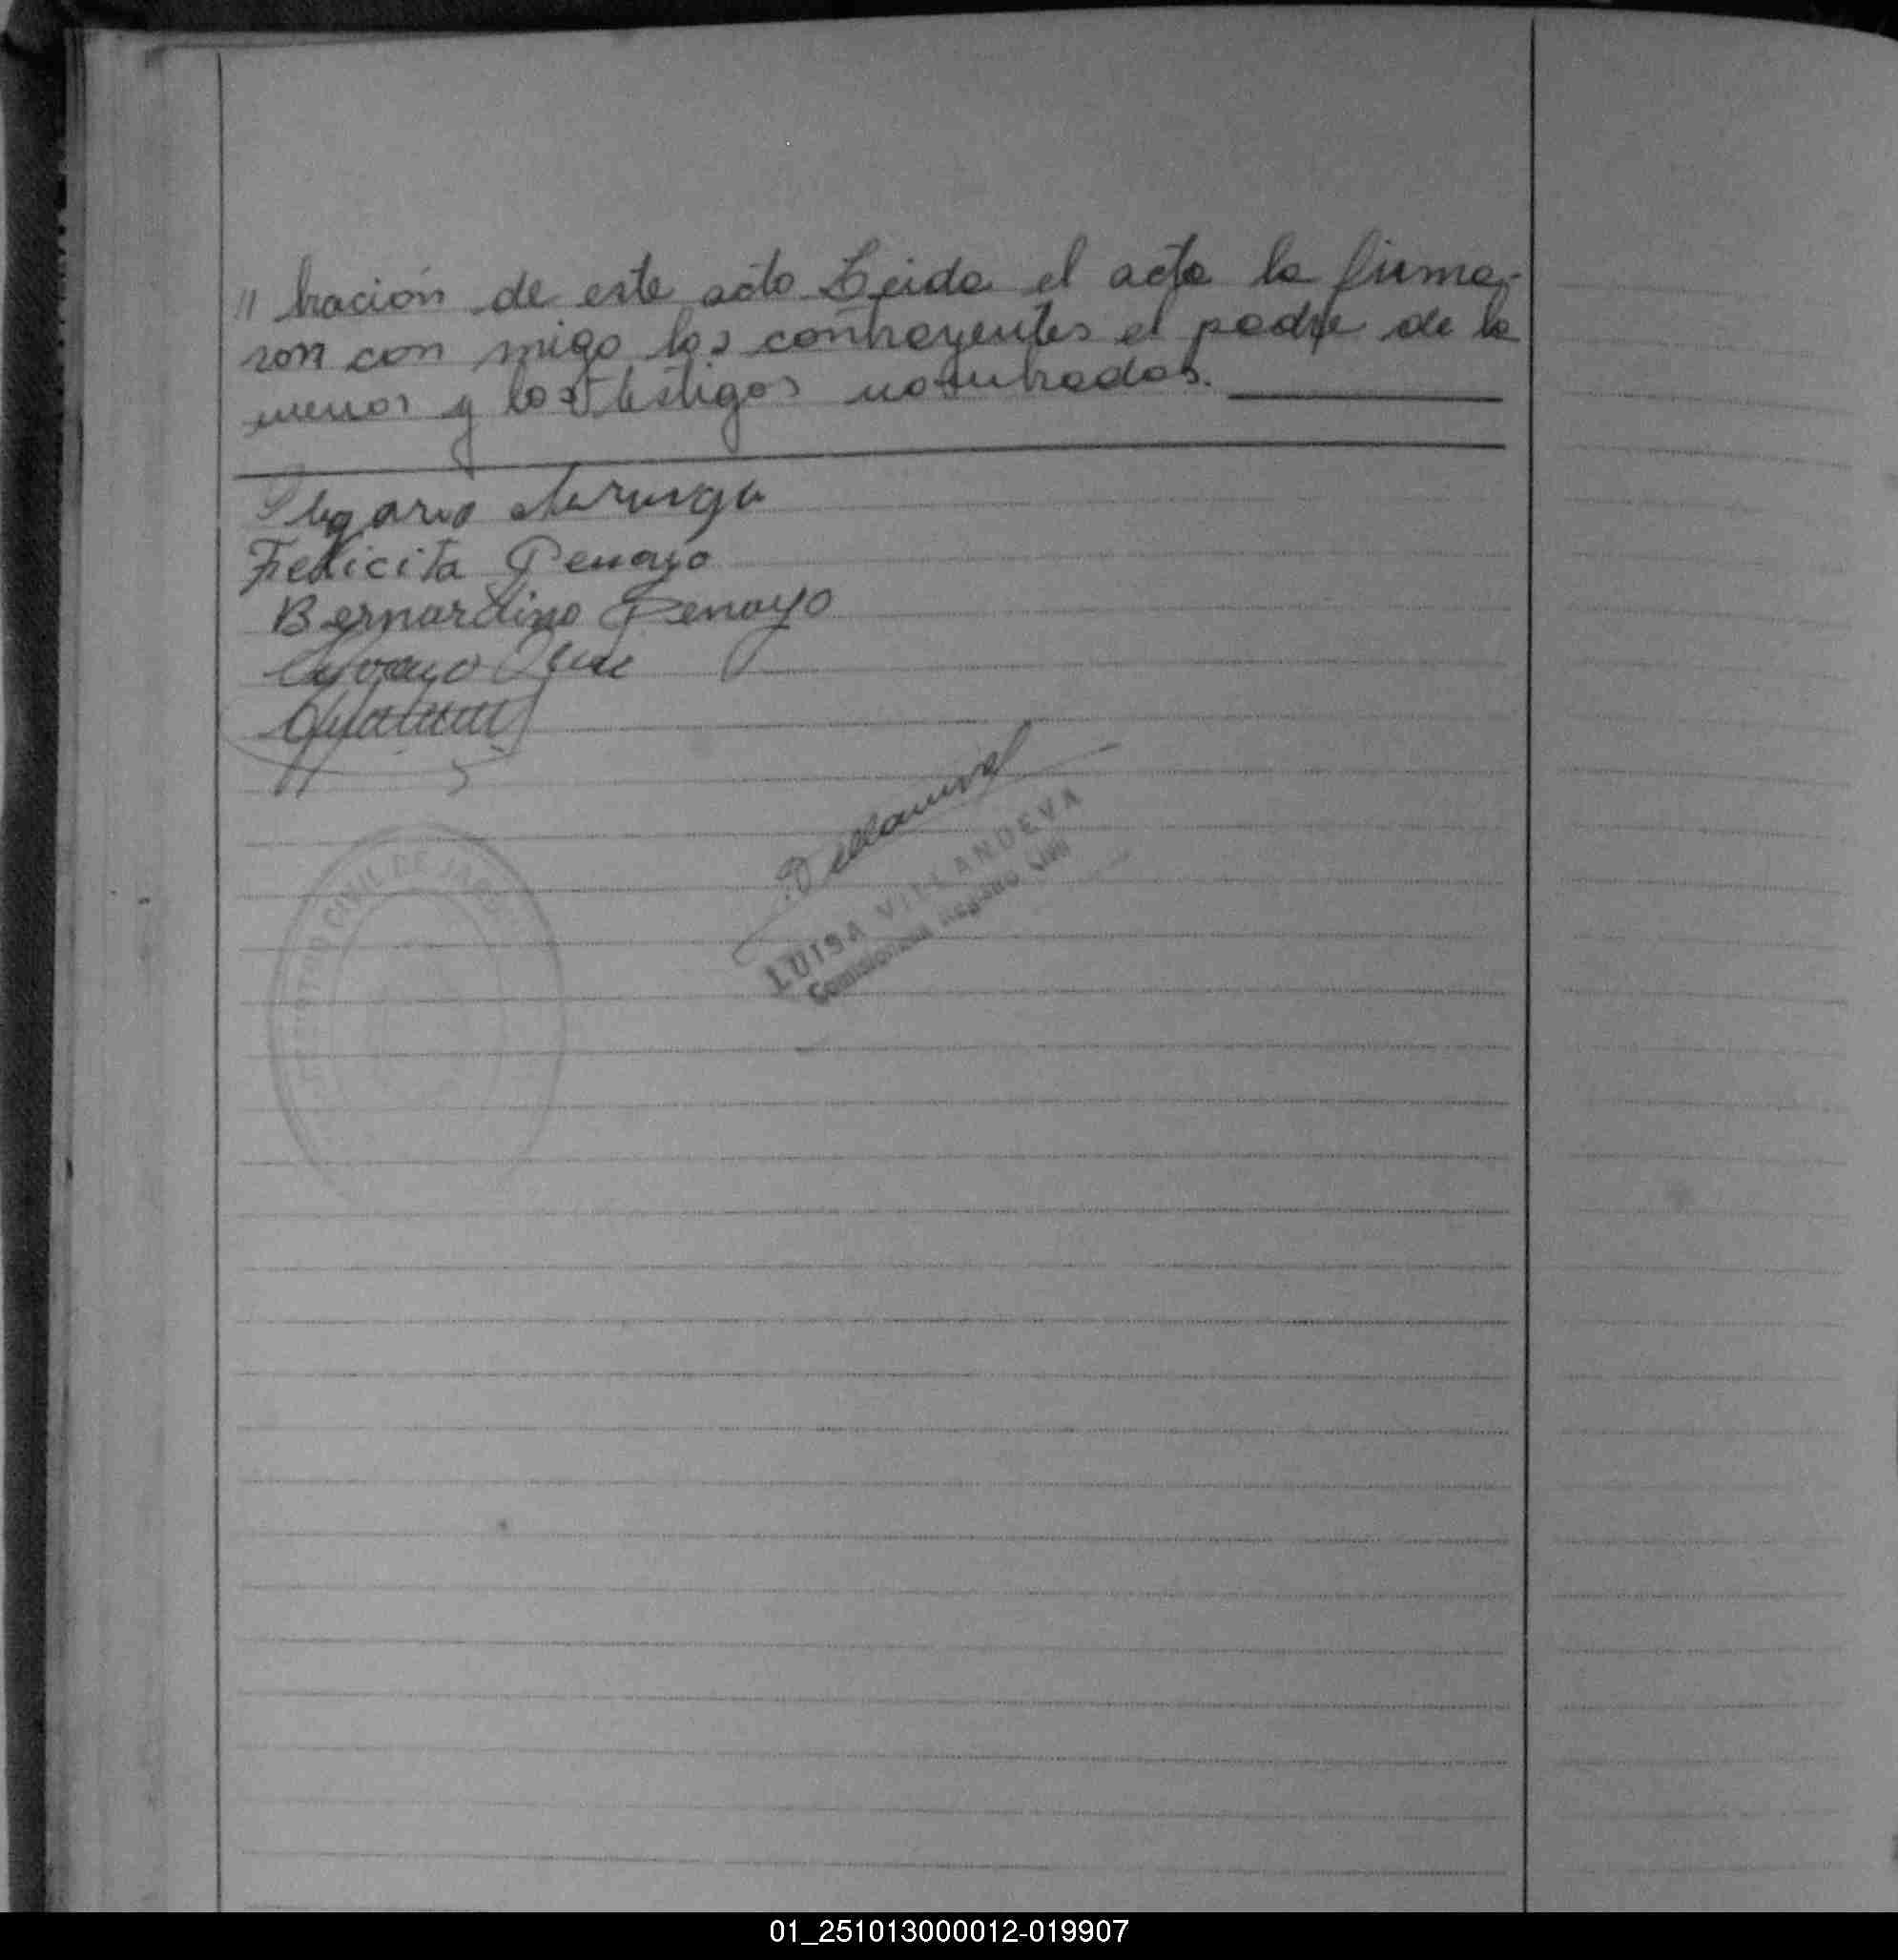 " bración de este acto Leida el acta la firma-
ron con migo los contrayentes el padre de la
menor y los testigos nombrados.
Felicita Penayo
Bernardino Penayo
Villanueva
LUISA VILLANUEVA
Comisionada Registro Civil
REGISTRO CIVIL DE
01_251013000012-019907